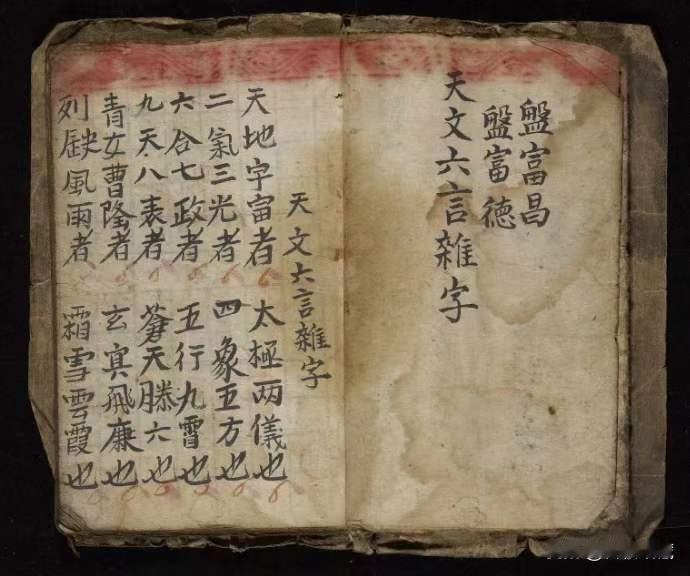 盤富昌
盤富德
天文六言雜字
天文六言雜字
天地字富者 太極两儀也
二氣三光者 四象五方也
六合七政者 五行九霄也
九天八表者 蒼天滕六也
青女曹隆者 玄冥飛廉也
列缺風雨者 霜雪雲霞也